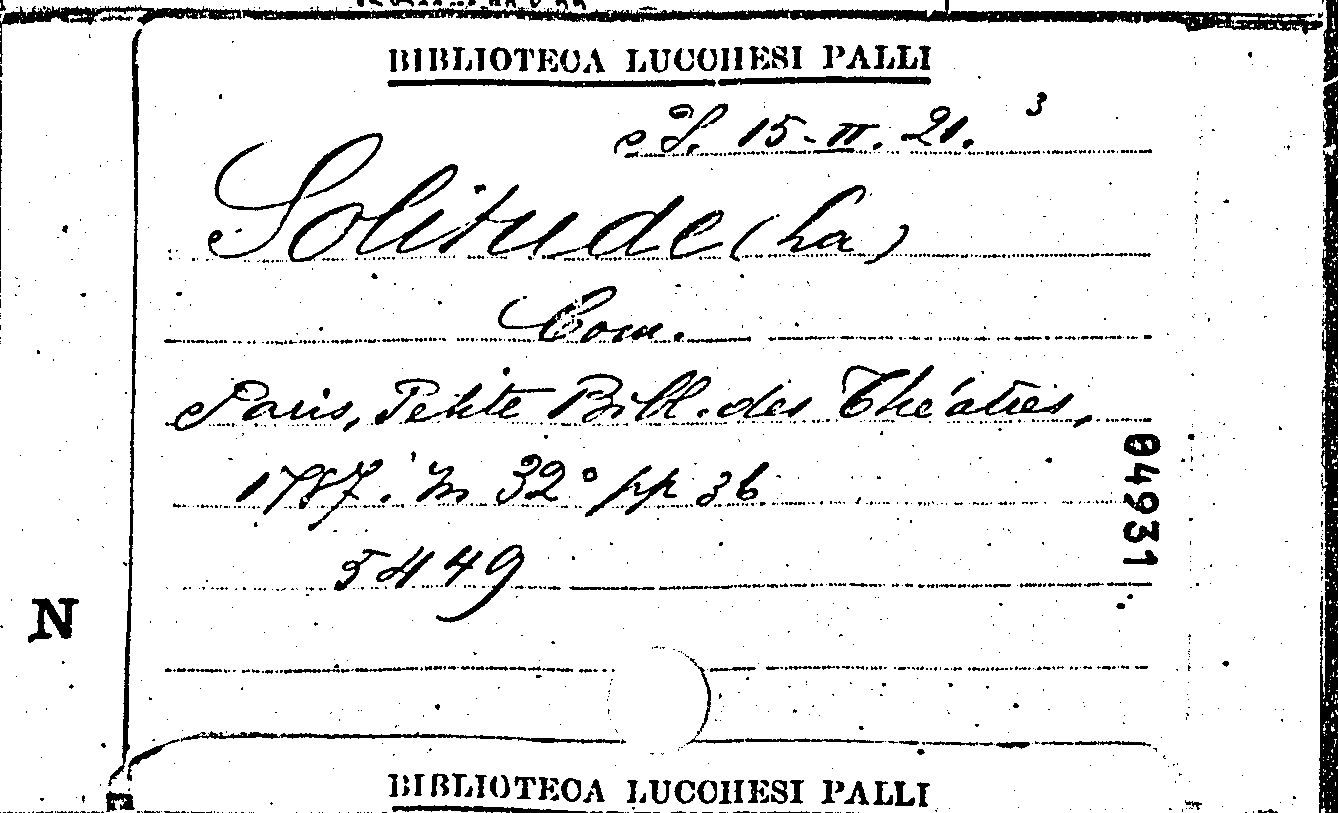 BIBLIOTECA LUCCHESI PALLI
S. 15-II. 21. 3
Solitude (La)
Com.
Paris, Petite Bibl. des Théâtres,
1787. in 32° pp 36
5449
04931
N
BIBLIOTECA LUCCHESI PALLI